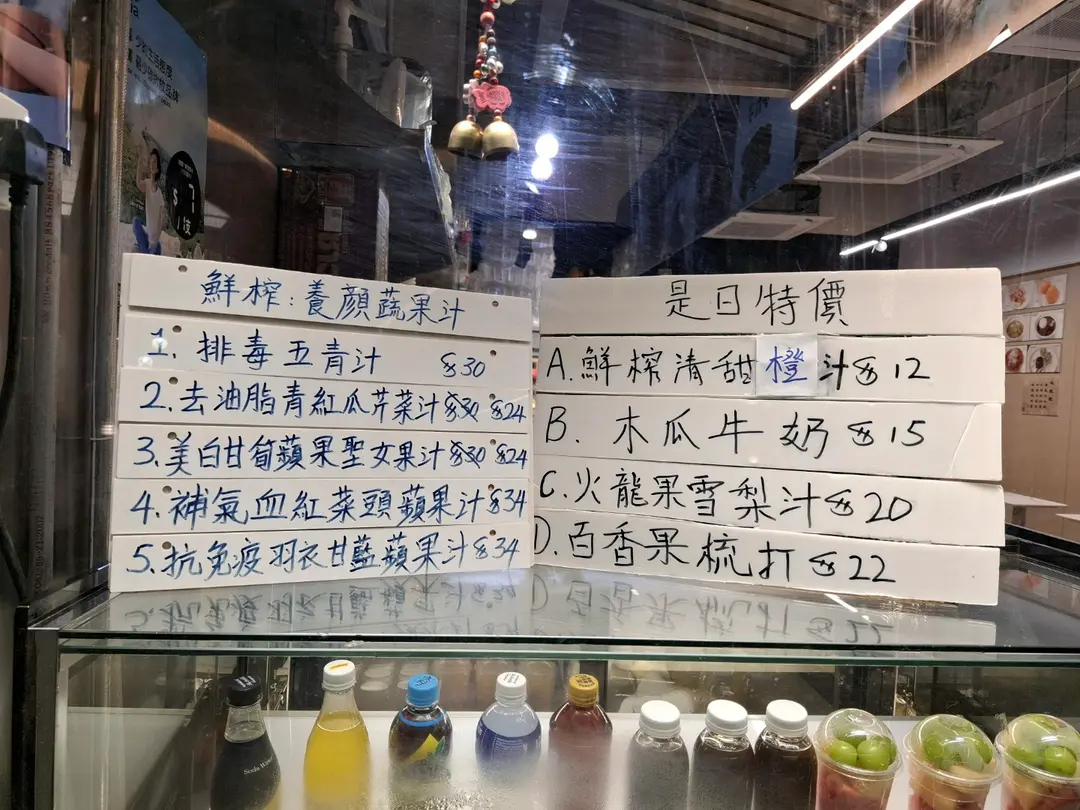 鮮榨:養顔蔬果汁
1. 排毒五青汁 $30
2.去油脂青紅瓜芹菜汁$30 $24
3.美白甘筍蘋果聖女果汁$30 $24
4.補氣血紅菜頭蘋果汁$34
5.抗免疫羽衣甘藍蘋果汁$34
是日特價
A.鮮榨清甜橙汁$12
B. 木瓜牛奶$15
C.火龍果雪梨汁$20
D.百香果梳打$22
Soda Water